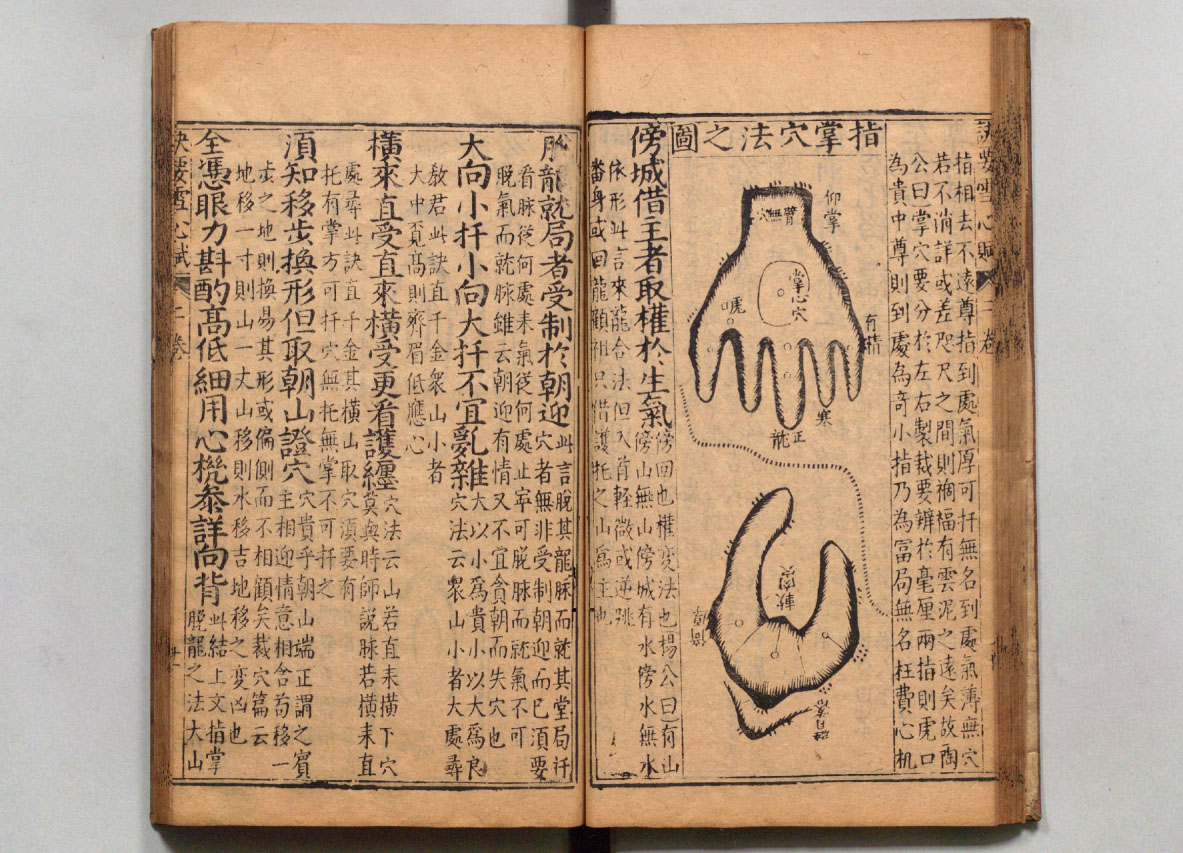 訣要雪心賦 二卷
指相去不遠尊指到處氣厚可扦無名到處氣薄無穴
若不消詳或差咫尺之間則禍福有雲泥之遠矣故陶
公曰掌穴要分於左右製裁要辨於毫厘兩指則虎口
為貴中尊則到處為奇小指乃為冨局無名枉費心机
指掌穴法之圖
仰掌
臂無穴
掌心穴
虎口
有情
寒
正龍
傍城借主者取權於生氣
傍囬也權变法也揚公曰有山
傍山無山傍城有水傍水無水
依形此言來龍合法但入首輕微或逆跳
番身或回龍顧祖只借護托之山為主也
脫龍就局者受制於朝迎
此言脫其龍脉而就其堂局扦
穴者無非受制朝迎而已須要
看脉從何處来氣從何處止寕可脫脉而就氣不可
脫氣而就脉雖云朝迎有情又不宜貪朝而失穴也
大向小扦小向大扦不宜亂雜
大以小爲貴小以大爲良
穴法云衆山小者大處尋
敎君此訣直千金衆山小者
大中頁髙則齊眉低應心
橫來直受直來橫受更看護纏
穴法云山若直来橫下穴
莫與時師説脉若橫来直
處尋此訣直千金其橫山取穴湏要有
托有掌方可扦穴無托無掌不可扦之
湏知移步換形但取朝山證穴
穴貴乎朝山端正謂之賓
主相迎情意相含苟移一
步之地則換易其形或偏側而不相顧矣裁穴篇云
地移一寸則山一丈山移則水移吉地移之变凶也
全憑眼力斟酌髙低細用心機參詳向背
此結上文指掌
脫龍之法大山
訣要雪心賦 二卷